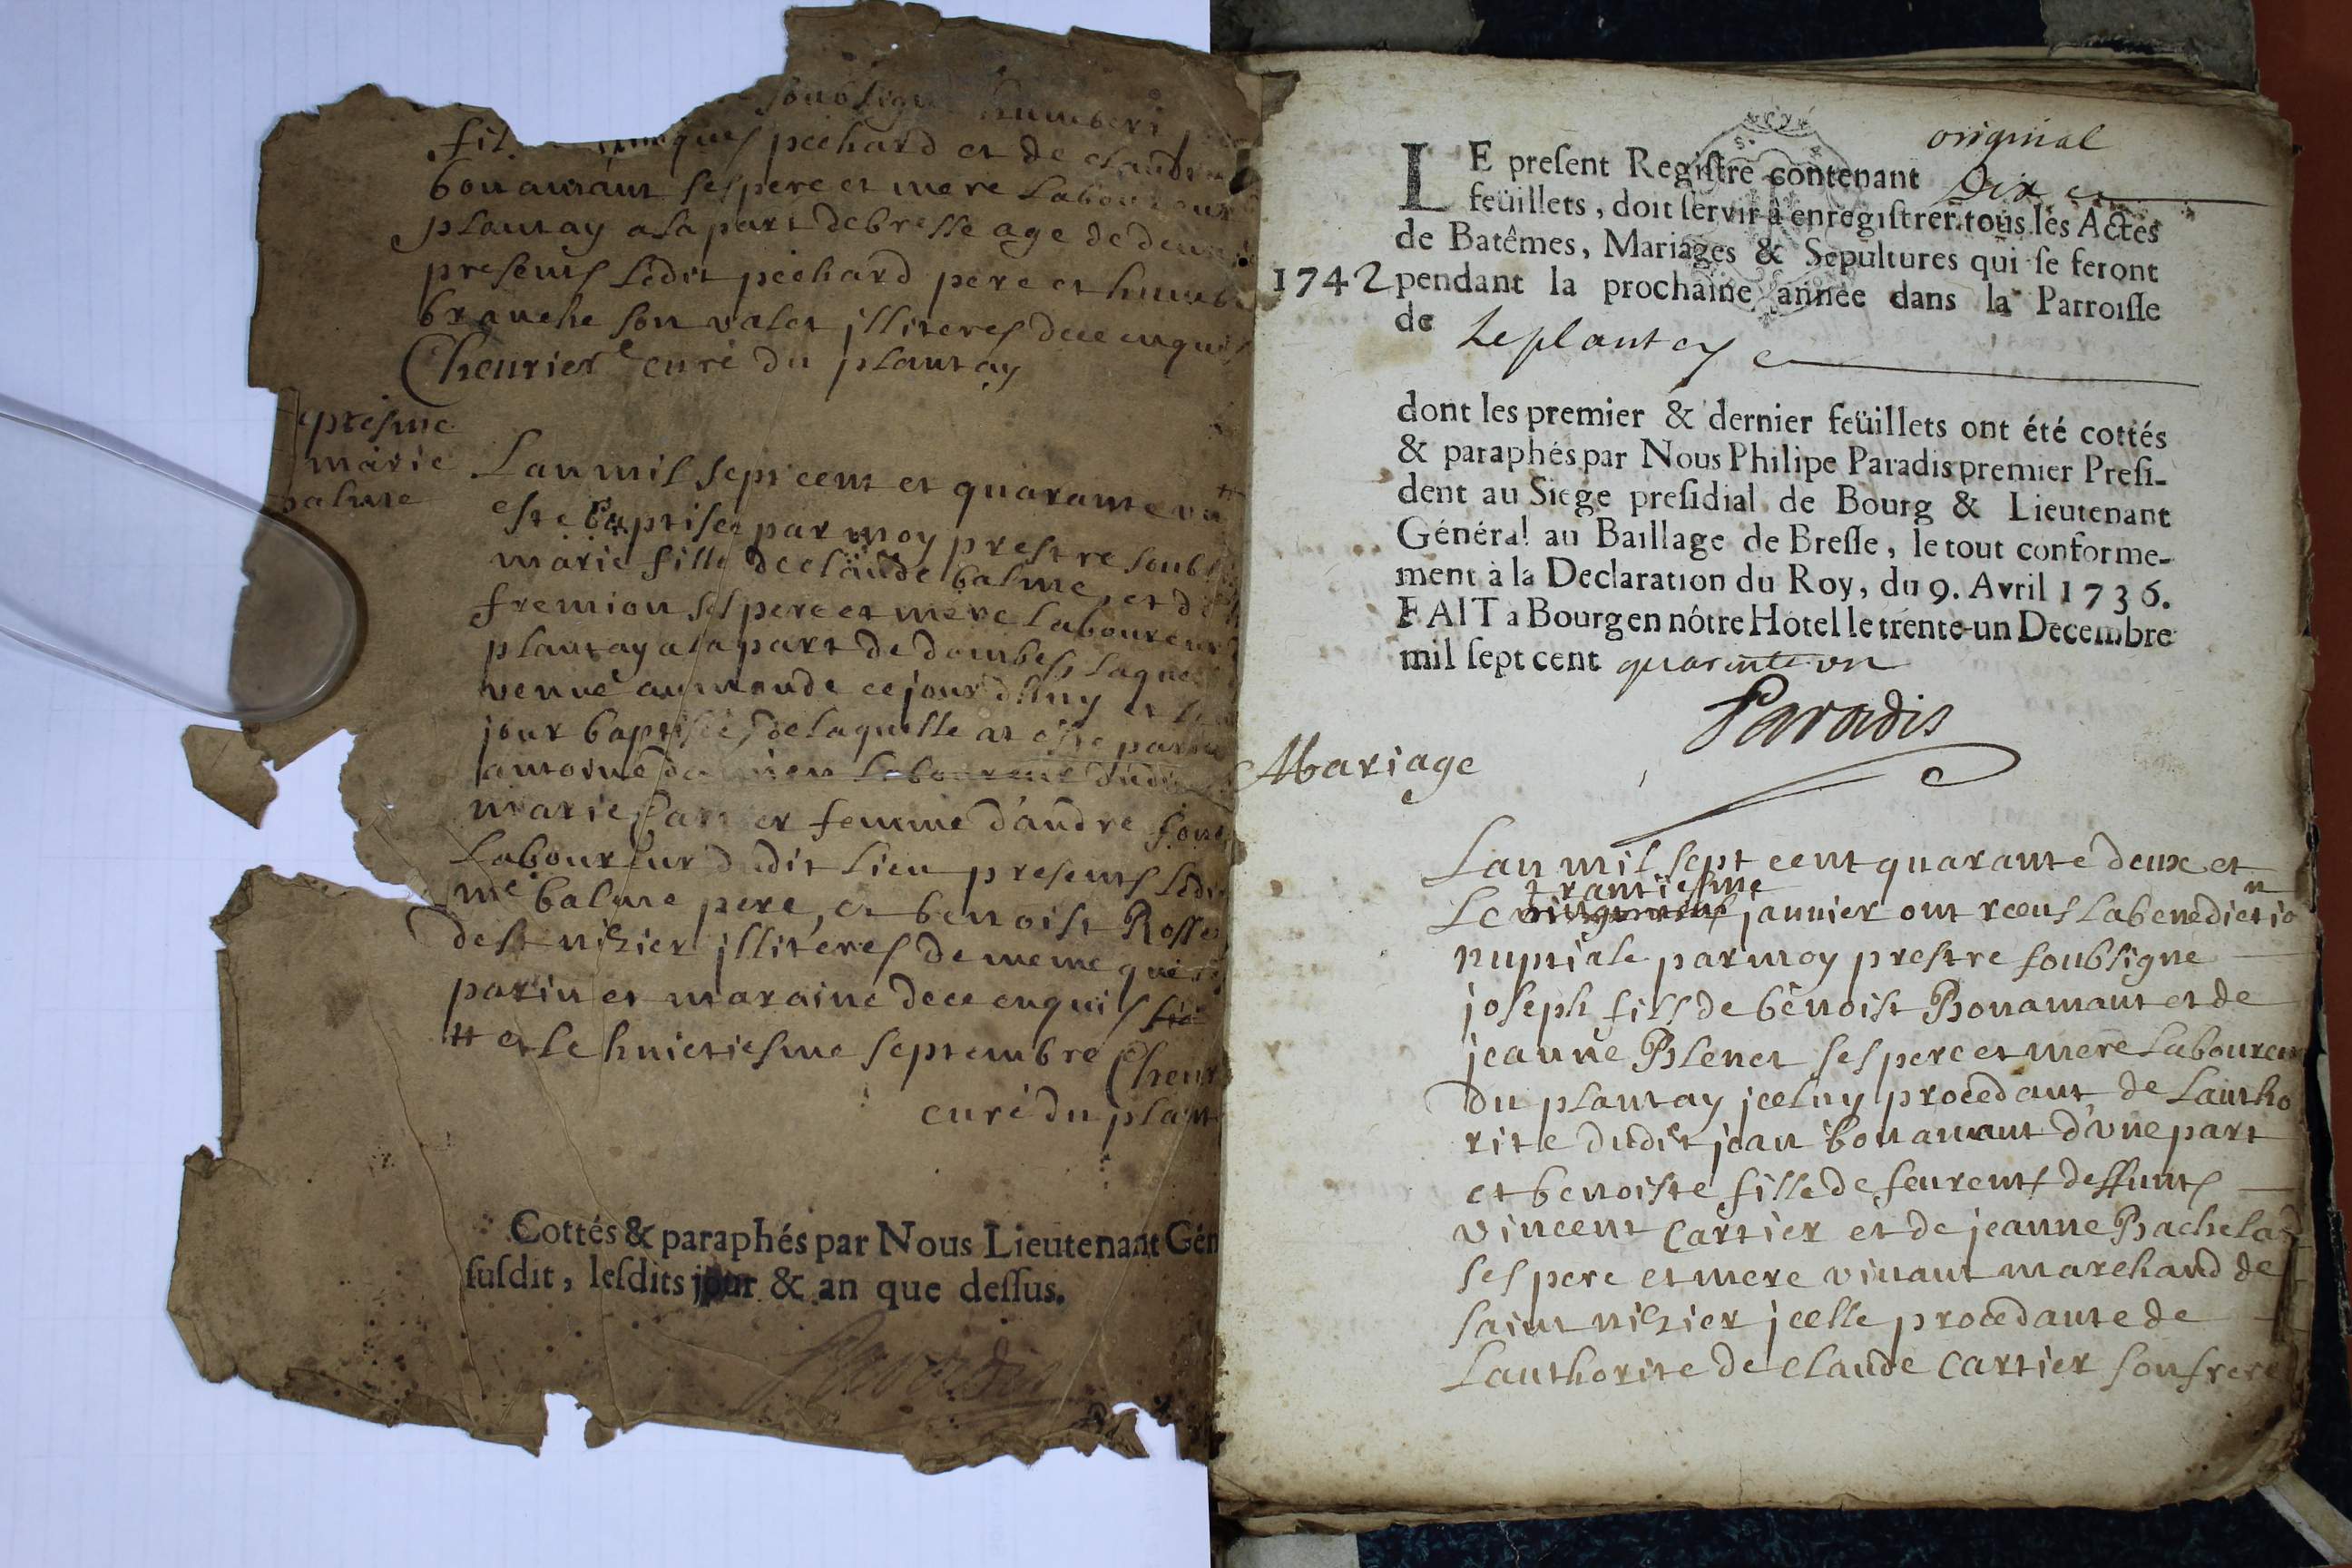 soubsigne humbert
fil jacques pechard et de claudine
bonamant ses pere et mere Laboureur
plantay a la part de bresse age de deux
presents Ledit pechard pere et humb
branche son valet jlliteres de ce enquis
Cheurier curé du plantay
presme
marie
balme
Lan mil sept cent et quarante un #
este baptisee par moy prestre soubs
marie fille de claude balme, et de
fremion ses pere et mere Laboureurs
plantay a la part de dombes laquelle
venue au monde ce jour d'huy et
jour baptisée, de laquelle at este parin
antoine Laboureur dudit
marie Carrier femme d'andre
Laboureur dudit Lieu presents Ledit
me balme pere, et benoist Rosse
de st nizier jlliteres de meme que
parin et maraine de ce enquis
# et le huictiesme septembre Cheur
curé du plant
Cottés & paraphés par Nous Lieutenant Gén
susdit, lesdits jour & an que dessus.
Paradis
original
LE present Registre contenant Dix
feüillets, doit servir à enregistrer tous les Actes
de Batêmes, Mariages & Sepultures qui se feront
1742 pendant la prochaine année dans la Parroisse
de Leplantay
dont les premier & dernier feüillets ont été cottés
& paraphés par Nous Philipe Paradis premier Presi-
dent au Siege presidial de Bourg & Lieutenant
Général au Baillage de Bresse, le tout conforme-
ment à la Declaration du Roy, du 9. Avril 1736.
FAIT a Bourg en nôtre Hotel le trente-un Decembre
mil sept cent quarente un
Paradis
Mariage
Lan mil sept cent quarante deux et
trantiesme
Le janvier ont receus la benedictio n
nuptiale par moy prestre soubsigne
joseph fils de benoist Bonamant et de
jeanne Blenet ses pere et mere Laboureur
du plantay jceluy procedant de Lautho
rite dudit jean bonamant d'une part
et benoiste fille de feu rents deffunts
vincent Cartier et de jeanne Bachelard
ses pere et mere vivant marchand de
saint nizier jcelle procedante de
Lauthorite de claude Cartier son frere